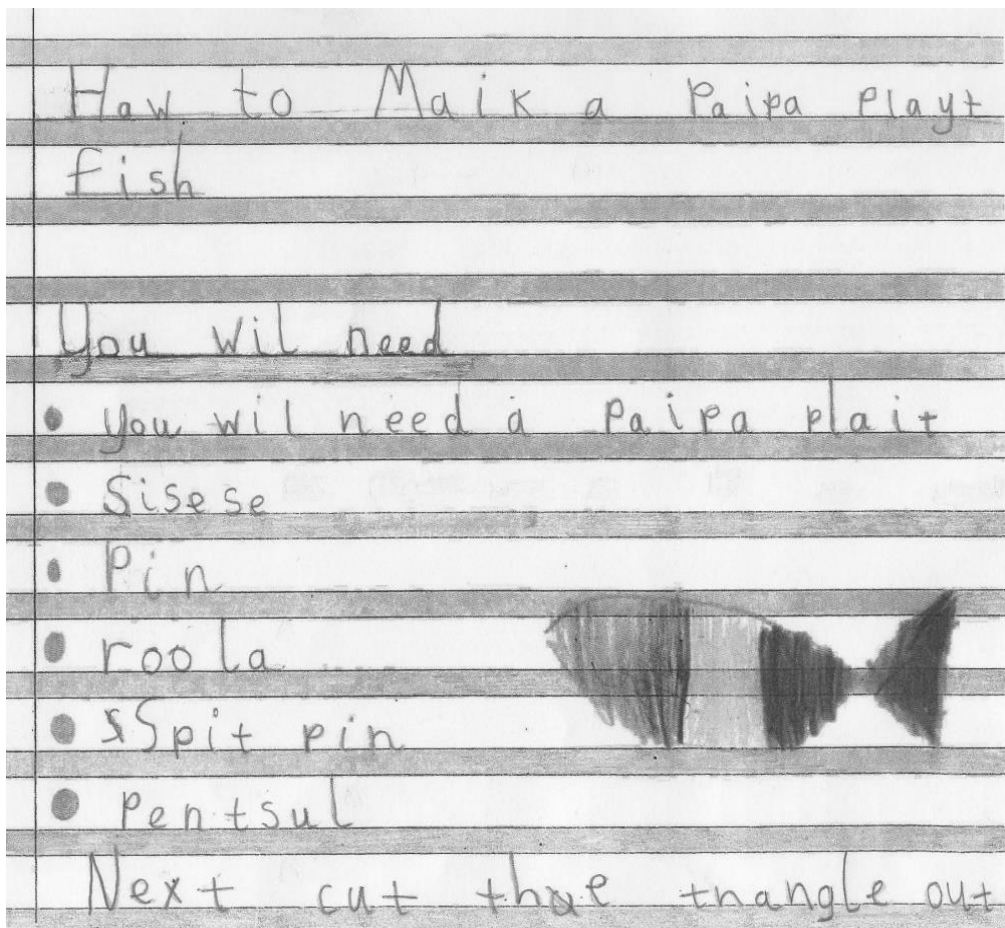 Haw to Maik a Paipa Playt
fish
You wil need
• you wil need a Paipa plait
• Sisese
• Pin
• roola
• Spit pin
• Pentsul
Next cut the tnangle out